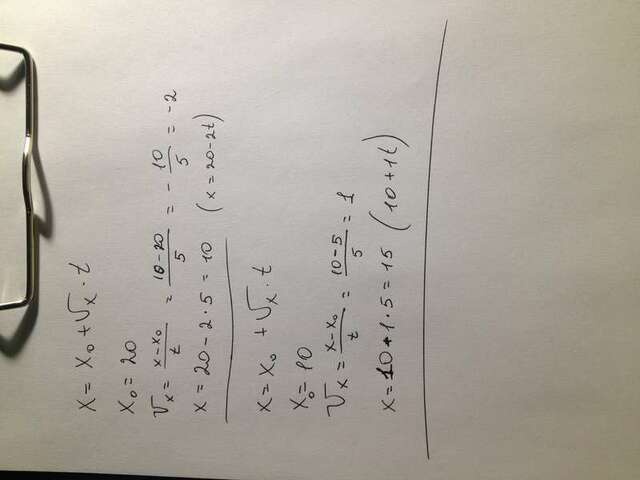 x = x₀ + υₓ · t
x₀ = 20
υₓ = (x - x₀)/t = (10 - 20)/5 = - 10/5 = -2
x = 20 - 2 · 5 = 10 (x = 20 - 2t)
x = x₀ + υₓ · t
x₀ = 10
υₓ = (x - x₀)/t = (10 - 5)/5 = 1
x = 10 + 1 · 5 = 15 (10 + 1t)